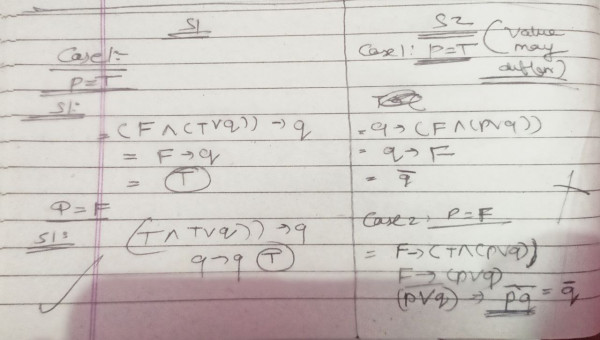 S1
Case1:-
P=T
S1:
= (F∧(T∨q)) → q
= F→q
= T
P=F
S1:
(T∧T∨q)) →q
q→q T
S2
Case1: P=T (Value may differ)
= q→ (F∧(P∨q))
= q→ F
= q̅
Case2: P=F
= F→(T∧(P∨q))
F→(P∨q)
(P∨q) → p̅q̅ = q̅